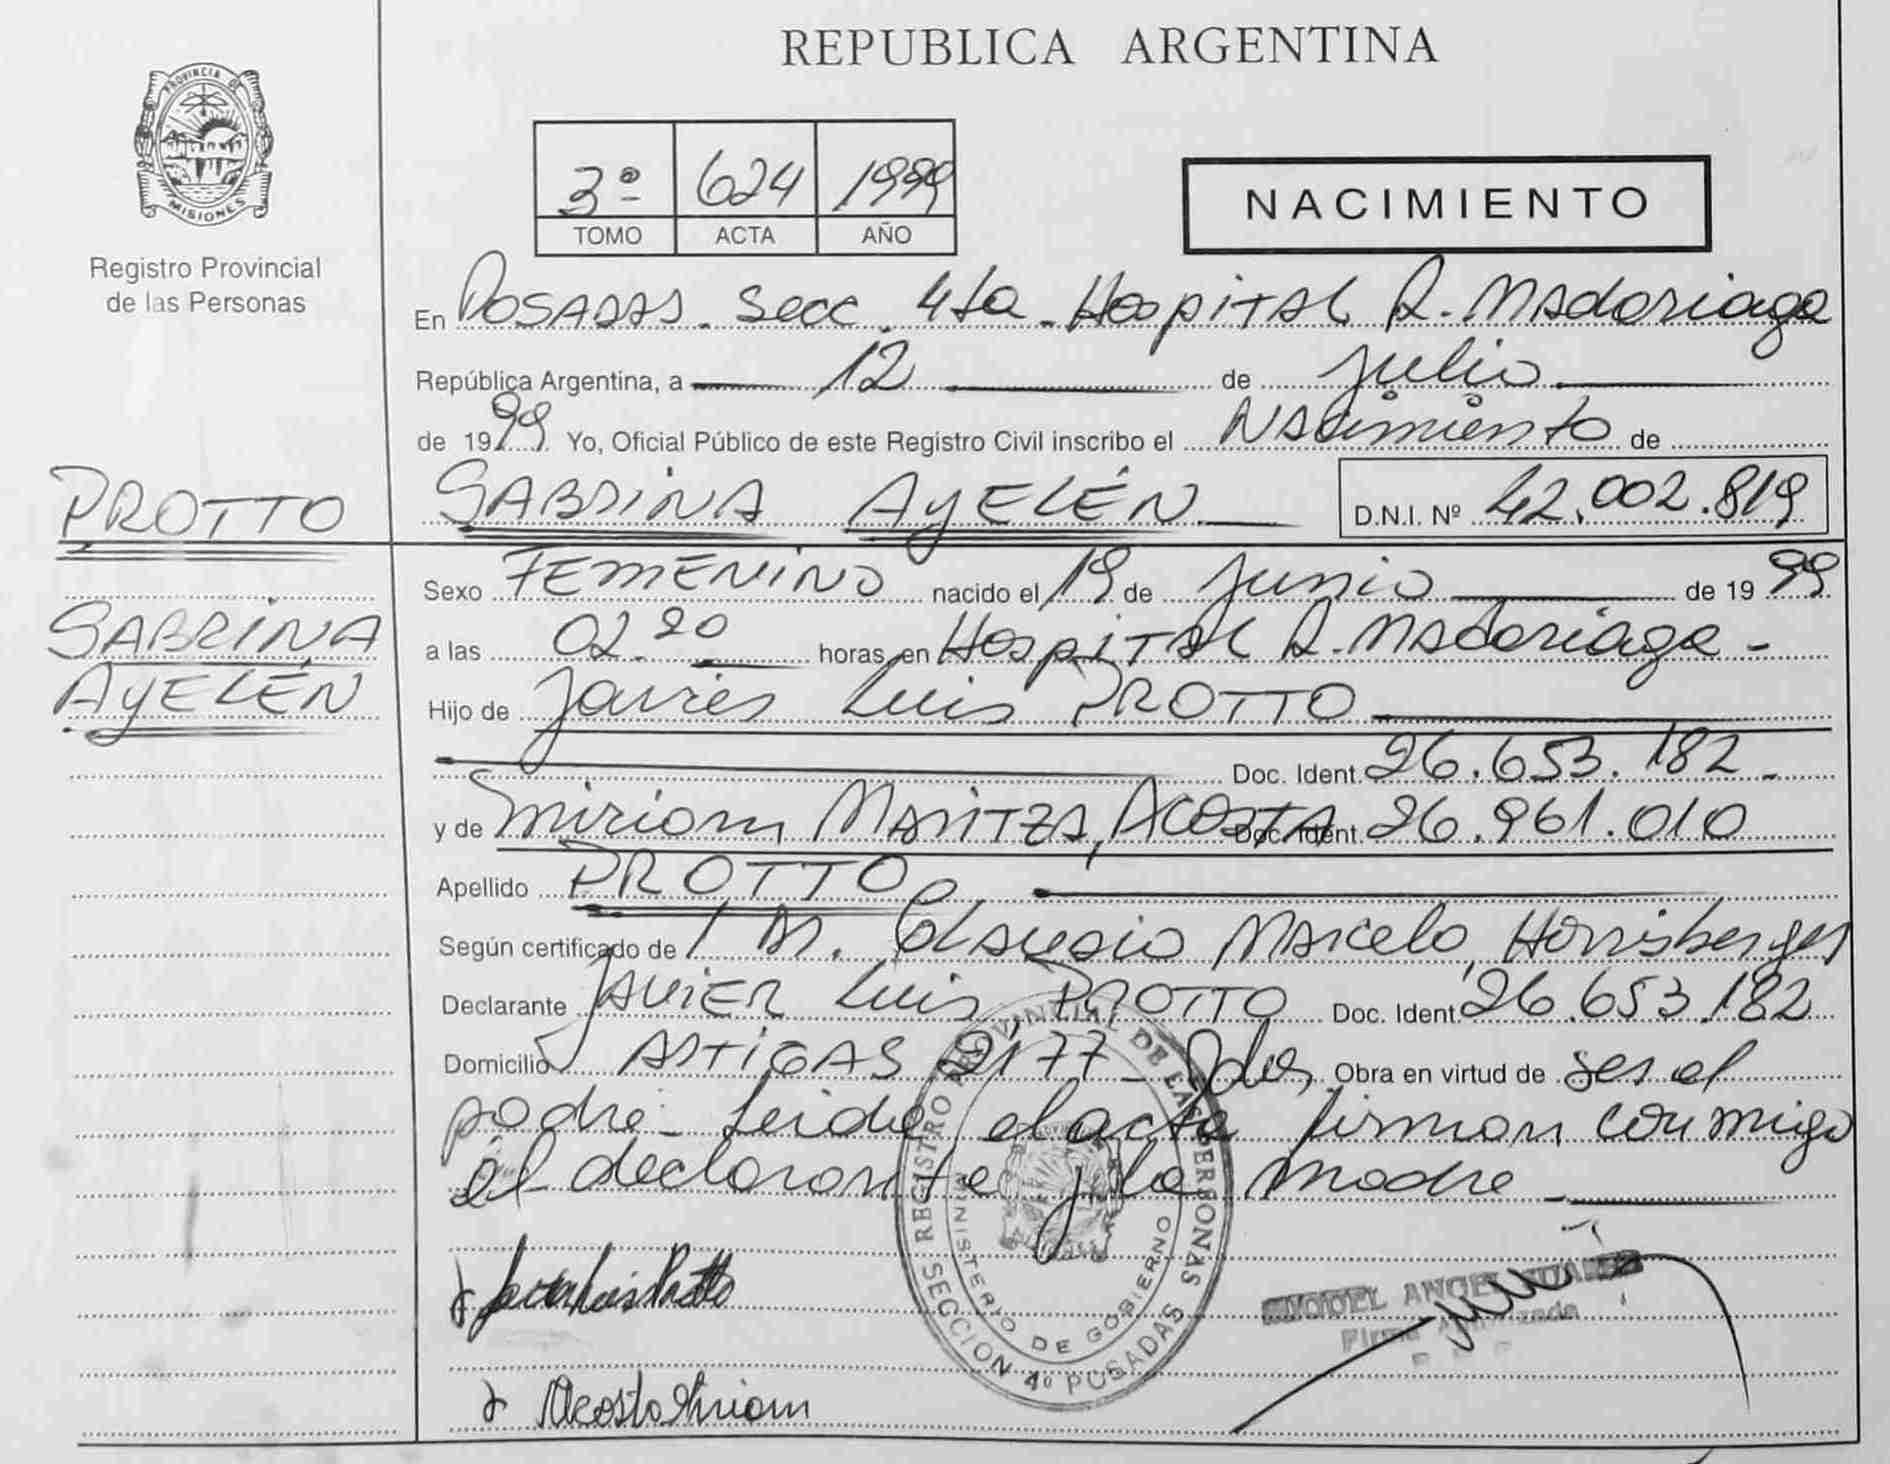 REPUBLICA ARGENTINA
PROVINCIA DE
MISIONES
Registro Provincial
de las Personas
3º 624 1999
TOMO ACTA AÑO
NACIMIENTO
En POSADAS. Secc. 4ta. Hospital R. Madariaga
República Argentina, a 12 de julio
de 1999 Yo, Oficial Público de este Registro Civil inscribo el Nacimiento de
PROTTO
SABRINA AYELÉN D.N.I. Nº 42.002.819
SABRINA
AYELÉN
Sexo FEMENINO nacido el 19 de junio de 1999
a las 02.20 horas en Hospital R. Madariaga -
Hijo de Javier Luis PROTTO
Doc. Ident. 26.653.182 -
y de Miriam Maritza, ACOSTA Doc. Ident. 26.961.010
Apellido PROTTO
Según certificado de Marcelo
Declarante JAVIER Luis PROTTO Doc. Ident. 26.653.182
Domicilio ARTIGAS 2177 - Pdas, Obra en virtud de ser el
padre - Leída el acta firman conmigo
el declarante y la madre -
Javier Luis Protto
Acosta Miriam
REGISTRO PROVINCIAL DE LAS PERSONAS
SECCION 4º POSADAS
MINISTERIO DE GOBIERNO
ANGEL
Firma Autorizada